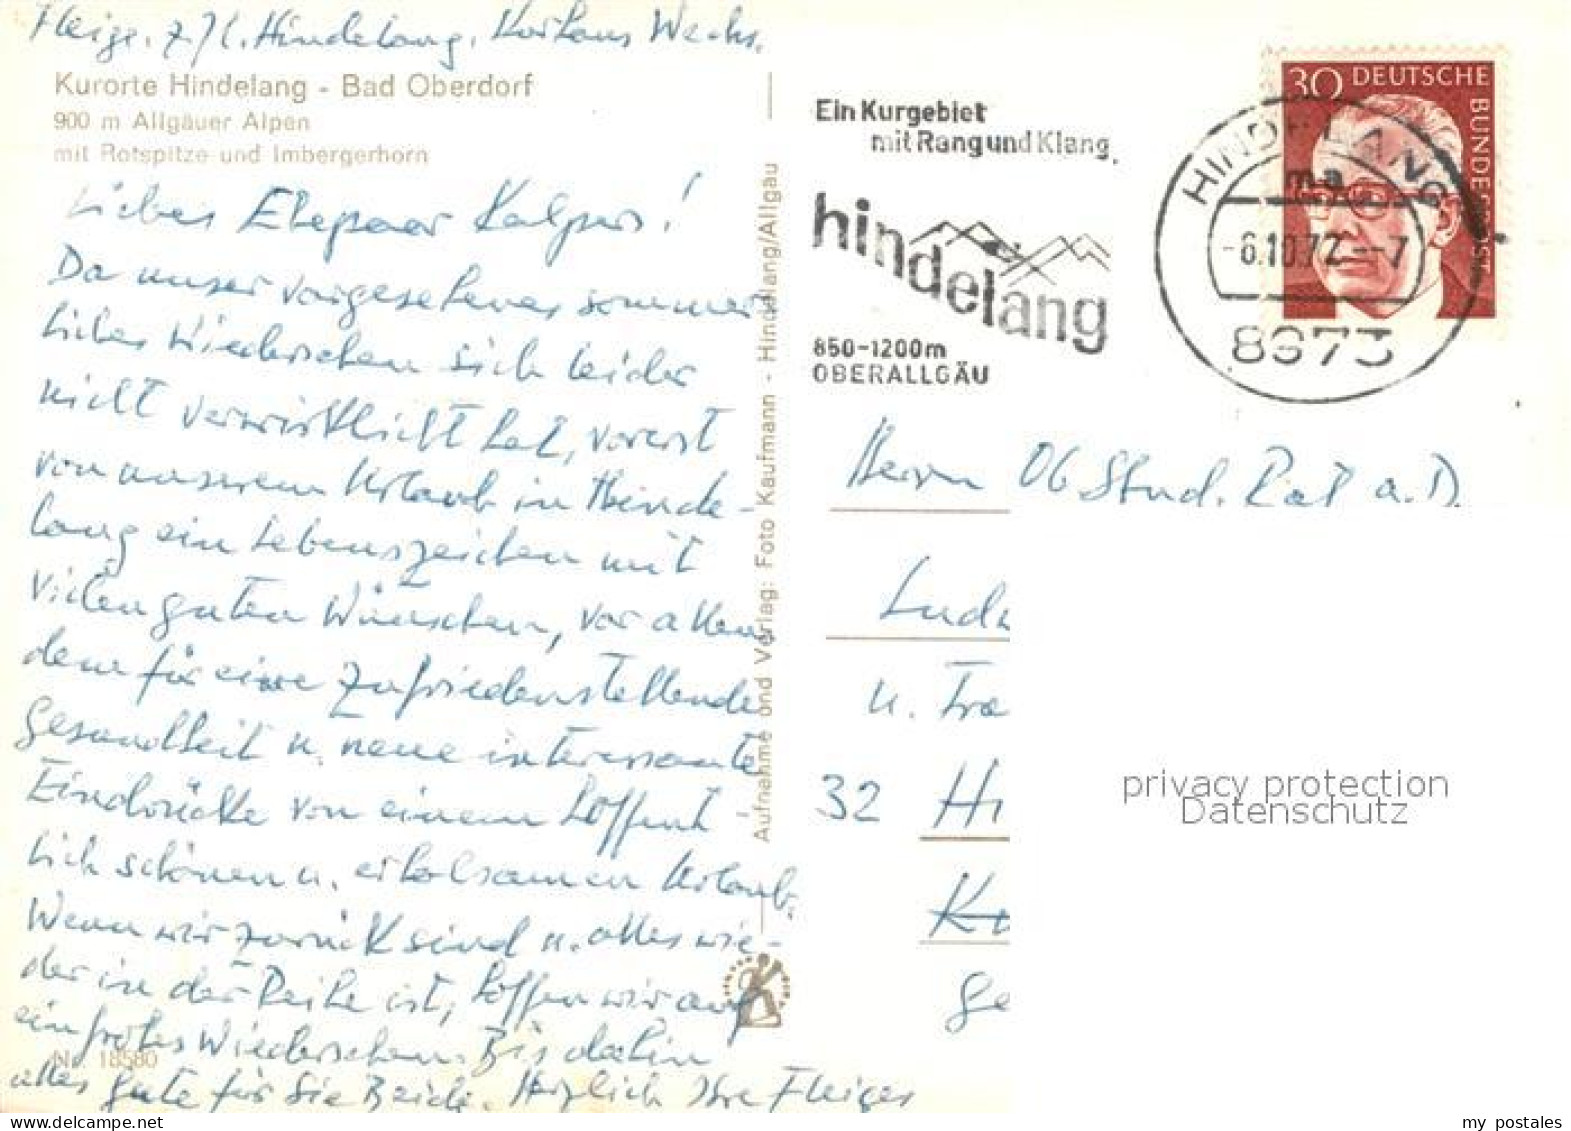 Fleige. z. Zt. Hindelang. Kurhaus Wechs.
Kurorte Hindelang - Bad Oberdorf
900 m Allgäuer Alpen
mit Rotspitze und Imbergerhorn
Liebes Ehepaar
Da unser vorgesehenes sommer
liches Wiedersehen sich leider
nicht verwirklicht hat, vorerst
von unserem Urlaub in Hinde-
lang ein Lebenszeichen mit
vielen guten Wünschen, vor allem
dem für eine zufriedenstellende
Gesundheit u. neue interessante
Eindrücke von einem hoffent
lich schönen u. erholsamen Urlaub.
Wenn wir zurück sind u. alles wie-
der in der Reihe ist, hoffen wir auf
ein frohes Wiedersehen. Bis dahin
alles Gute für Sie Beide. Herzlich Ihre Fleiges
Nr. 18580
Aufnahme und Verlag: Foto Kaufmann - Hindelang/Allgäu
Ein Kurgebiet
mit Rang und Klang
hindelang
850-1200m
OBERALLGÄU
30 DEUTSCHE
BUNDESPOST
HINDELANG
ma
-6.10.72.--7
8973
Herrn Ob Stud. Rat a. D.
Ludw
u. Fra
32 Hi
Ku
Ge
privacy protection
Datenschutz
my postales